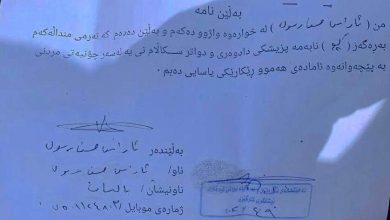 بەڵێن نامە
من ( ئاراس حسن رسول ) لە خوارەوە واژوو دەکەم و بەڵێن دەدەم کە تەرمی منداڵەکەم
بەرەگەز ( کچ ) نابەمە پزیشکی دادوەری و دواتر سکاڵام نی یە لەسەر چۆنیەتی مردنی
بە پێچەوانەوە ئامادەی هەموو ڕێکارێکی یاسایی دەبم .
بەڵێندەر
ناو/ ئاراس حسن رسول
ناونیشان/
ژمارەی مۆبایل